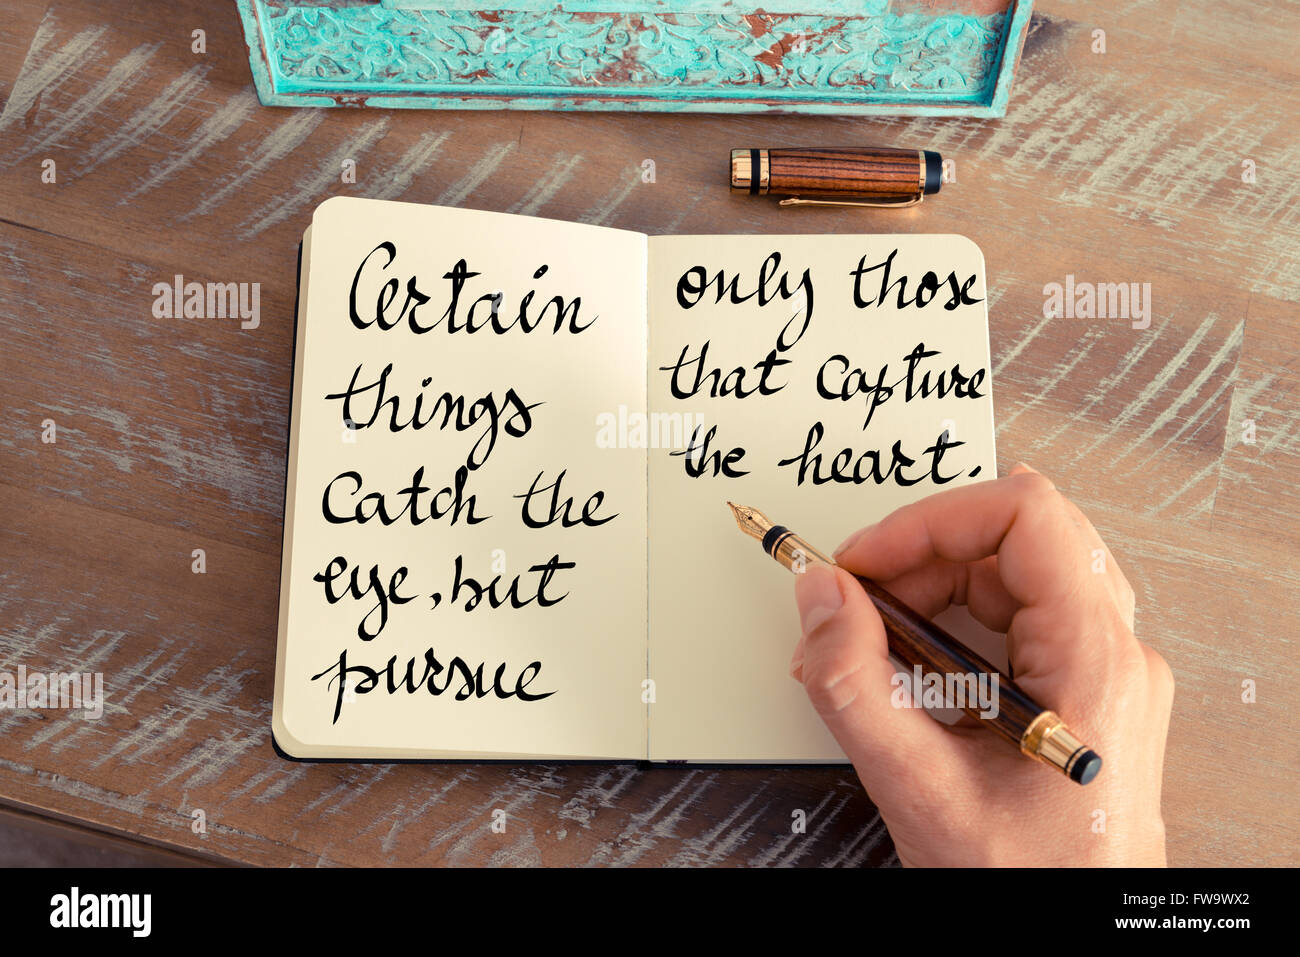 Certain
things
Catch the
eye, but
pursue
only those
that capture
the heart.
alamy
alamy
alamy
alamy
alamy
alamy stock photo
FW9WX2
www.alamy.com